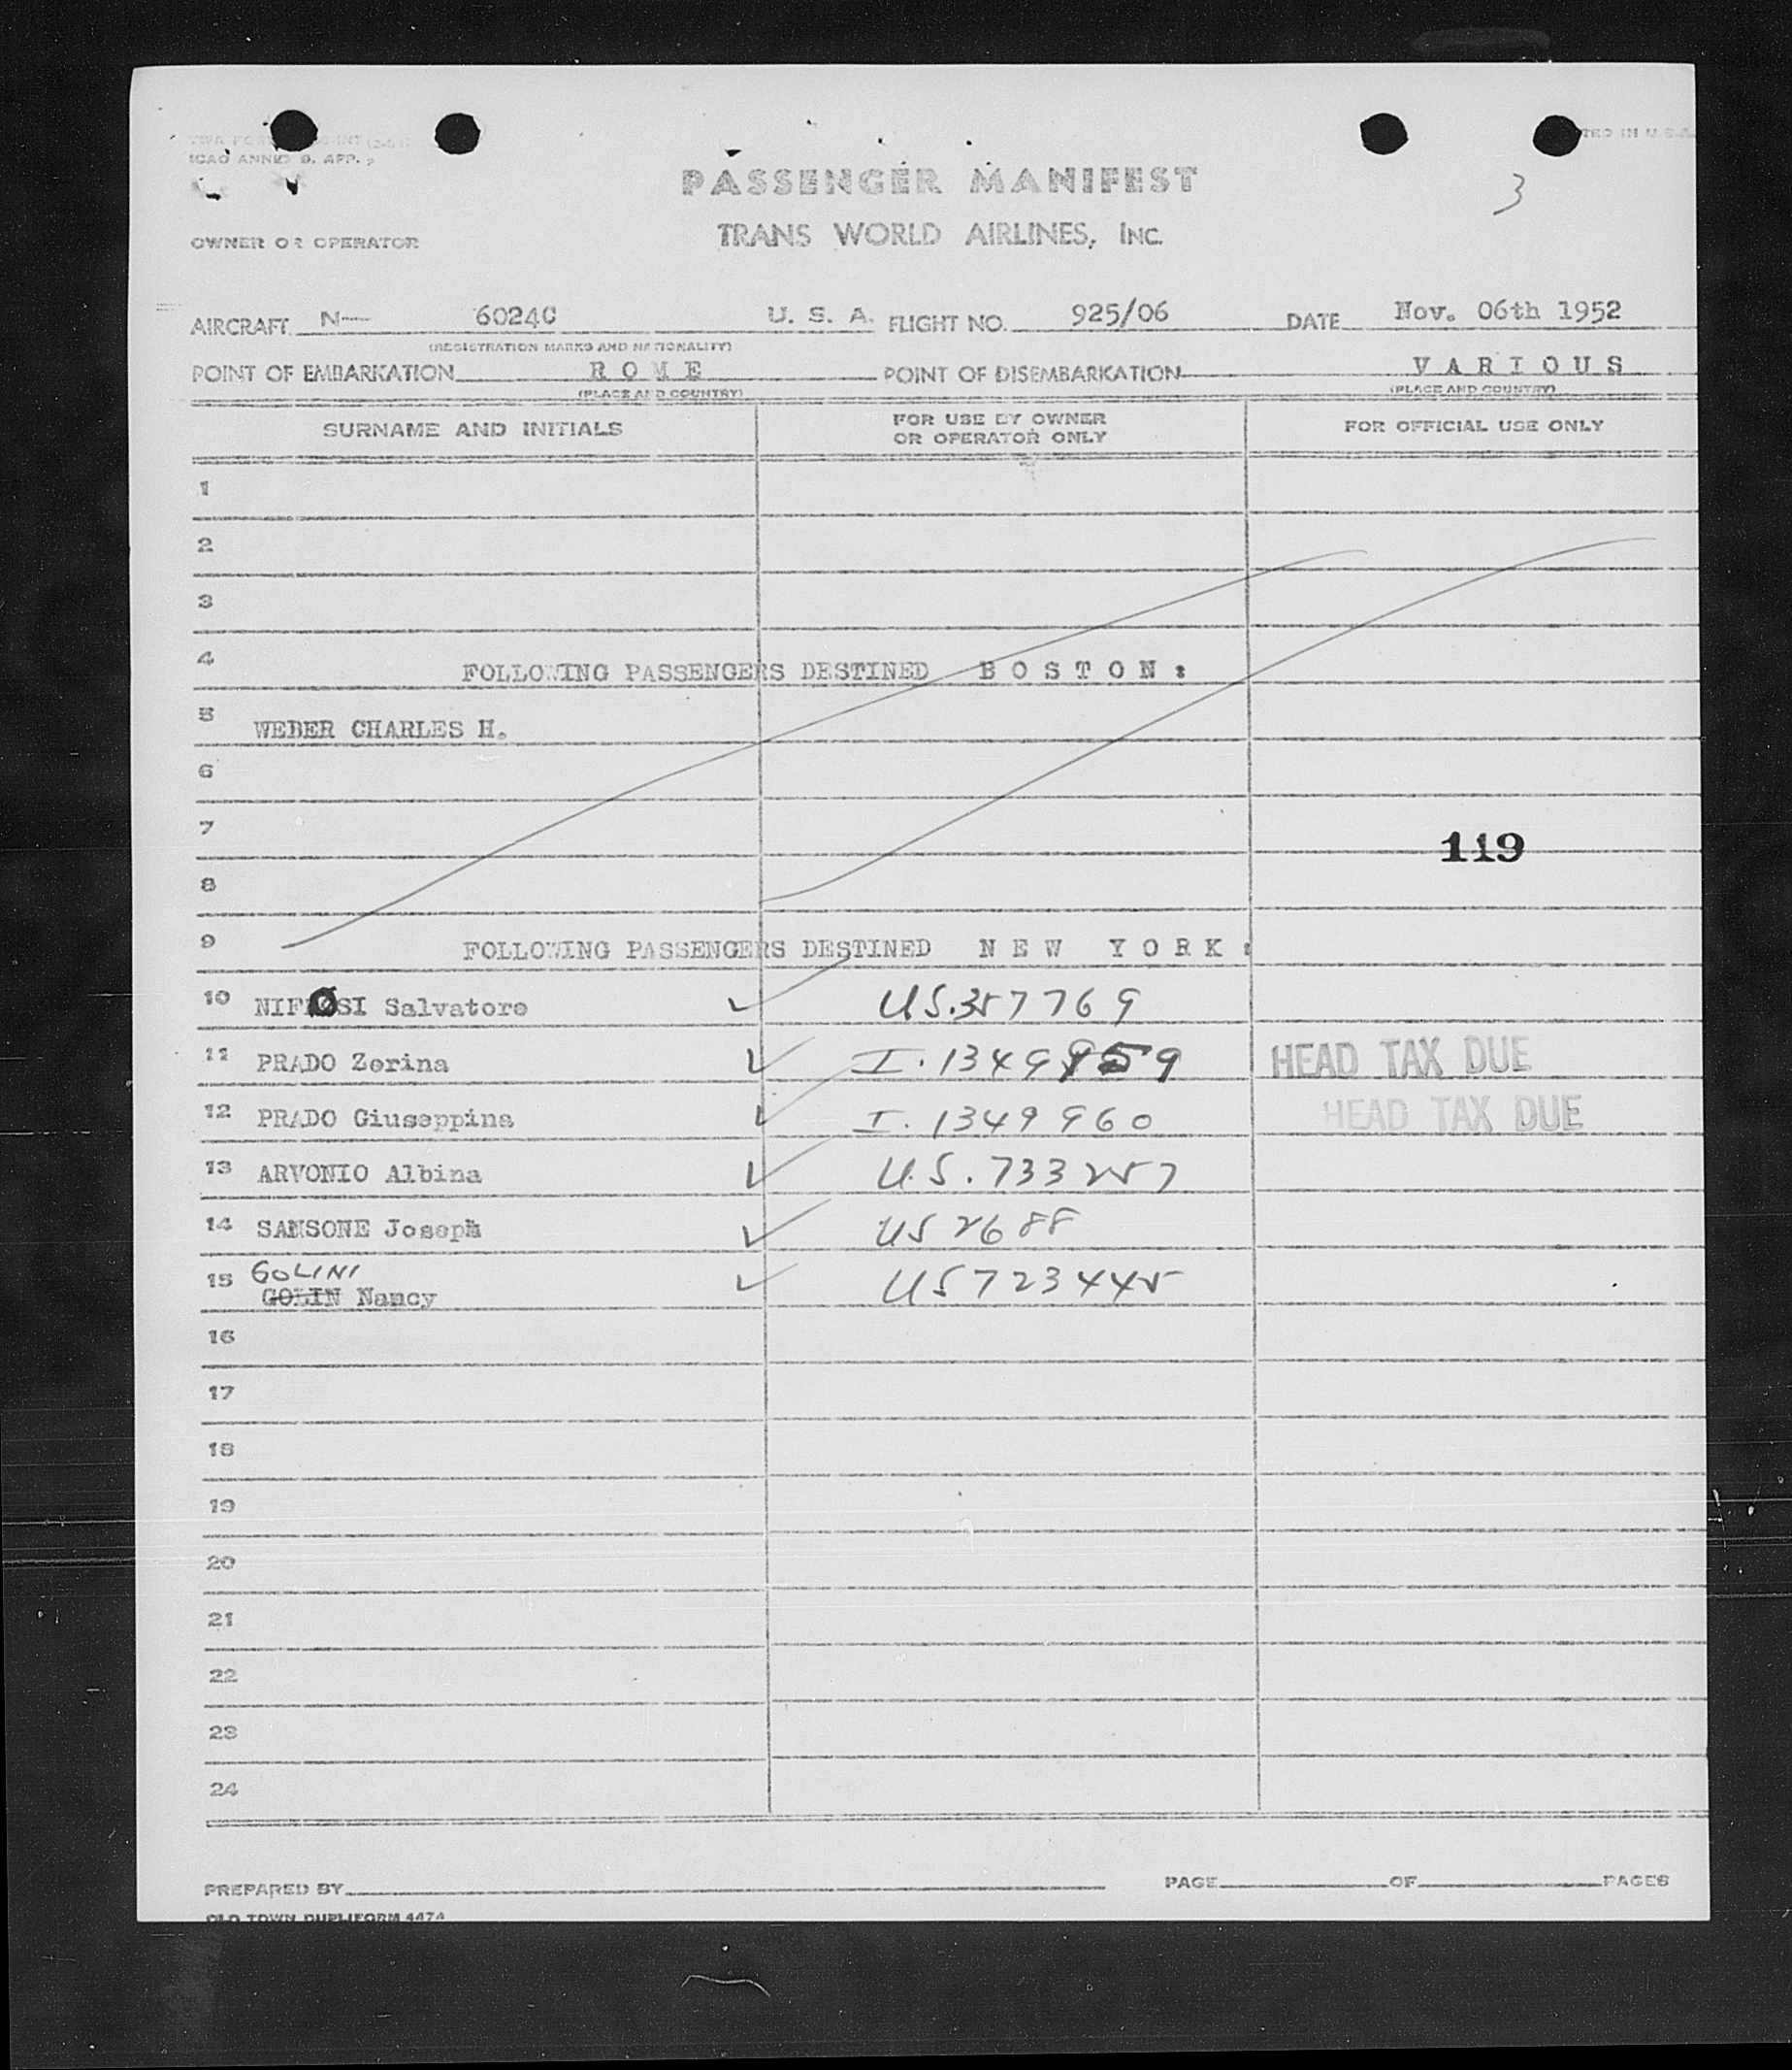 ICAO ANNEX 9, APP.
PASSENGER MANIFEST
3
OWNER OR OPERATOR
TRANS WORLD AIRLINES, INC.
AIRCRAFT N— 6024C U. S. A. FLIGHT NO. 925/06 DATE Nov. 06th 1952
(REGISTRATION MARKS AND NATIONALITY)
POINT OF EMBARKATION R O M E POINT OF DISEMBARKATION V A R I O U S
(PLACE AND COUNTRY) (PLACE AND COUNTRY)
SURNAME AND INITIALS FOR USE BY OWNER OR OPERATOR ONLY FOR OFFICIAL USE ONLY
1
2
3
4 FOLLOWING PASSENGERS DESTINED B O S T O N :
5 WEBER CHARLES H.
6
7
119
8
9 FOLLOWING PASSENGERS DESTINED N E W Y O R K :
10 Salvatore US.357769
11 PRADO Zerina I. 1349959 HEAD TAX DUE
12 PRADO Giuseppina I. 1349960 HEAD TAX DUE
13 ARVONIO Albina U.S. 733257
14 SANSONE Joseph US 2688
15 GOLINI
GOLIN Nancy US723445
16
17
18
19
20
21
22
23
24
PREPARED BY PAGE OF PAGES
OLD TOWN DUPLIFORM 4474